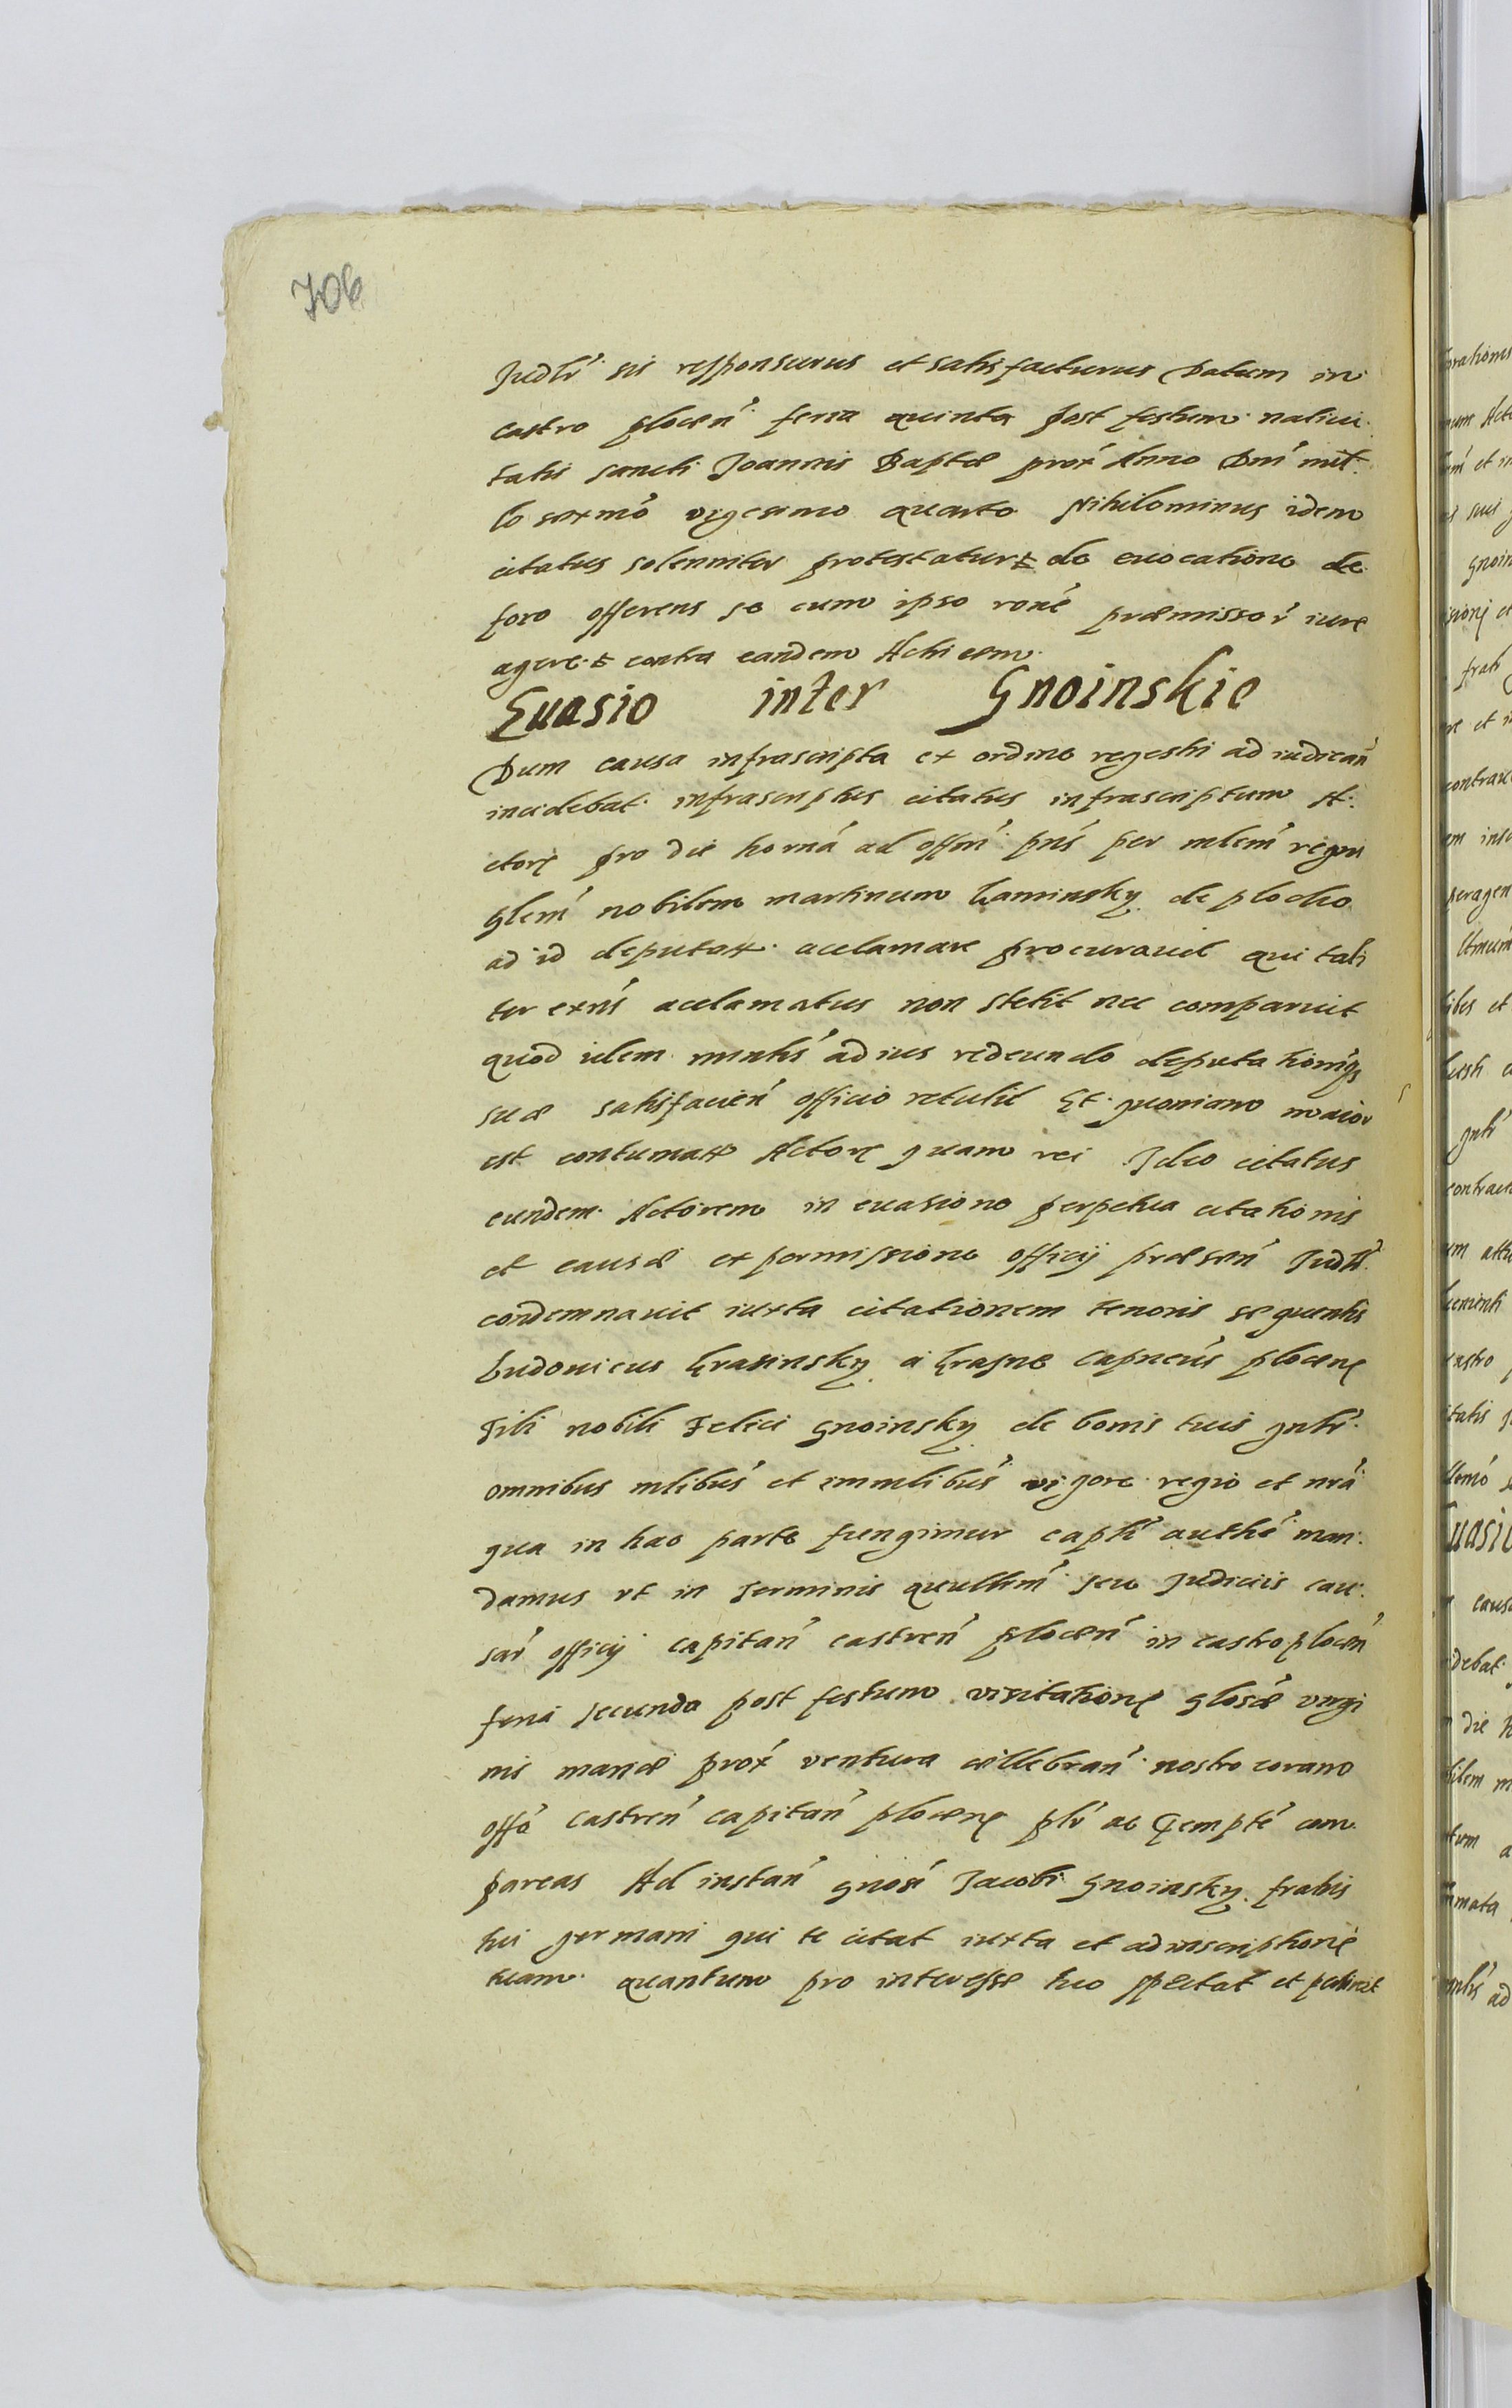 706
Judlr sis responsurus et satisfacturus Datum in
castro plocen feria quinta post festum nativi.
tatis sancti Joannis Baptæ prox Anno Dni mil.
lo sexmo vigesimo quarto Nihilominus idem
citatus solenniter protestatur de evocatione de
foro offerens se cum ipso rone præmissor iure
agere. et contra eandem Acticem.
Euasio inter Gnoinskie
Dum causa infrascripta ex ordine regestri ad iudican
incidebat infrascriptus citatus infrascriptum A:
ctore pro die horna ad offm pns per mlem regni
glem nobilem martinum Laminsky de plocko
ad id deputatt. acclamare procuravit qui tali
ter extns acclamatus non stetit nec comparuit
quod idem mnhs ad ius redeundo deputationisq
suæ satisfacien officio retulit Et quoniam maior
est contumatt Actore quam rei Ideo citatus
eundem Actorem in euasione perpetua citationis
et causæ ex permissione officij præsen Judlr
condemnauit iuxta citationem tenoris sequentis
Ludouicus Krasinsky a Krasne Capneus plocens
Tibi nobili Felici Gnoinsky de bonis tuis gnlr
omnibus mlibus et immlibus vigore regio et nra
qua in hac parte fungimur captli authe man:
damus vt in Terminis querellm seu Judiciis cau:
sar officij capitan castren plocen in castro plocen
feria secunda post festum visitationis glosæ virgi
nis mariæ prox ventura cellebran nostro coram
offo castren capitan plocens plr ac perempte com
pareas Ad instan gnosi Jacobi Gnoinsky fratris
tui germani qui te citat iuxta et ad inscriptione
tuam quantum pro interesse tuo spectat et pertinet